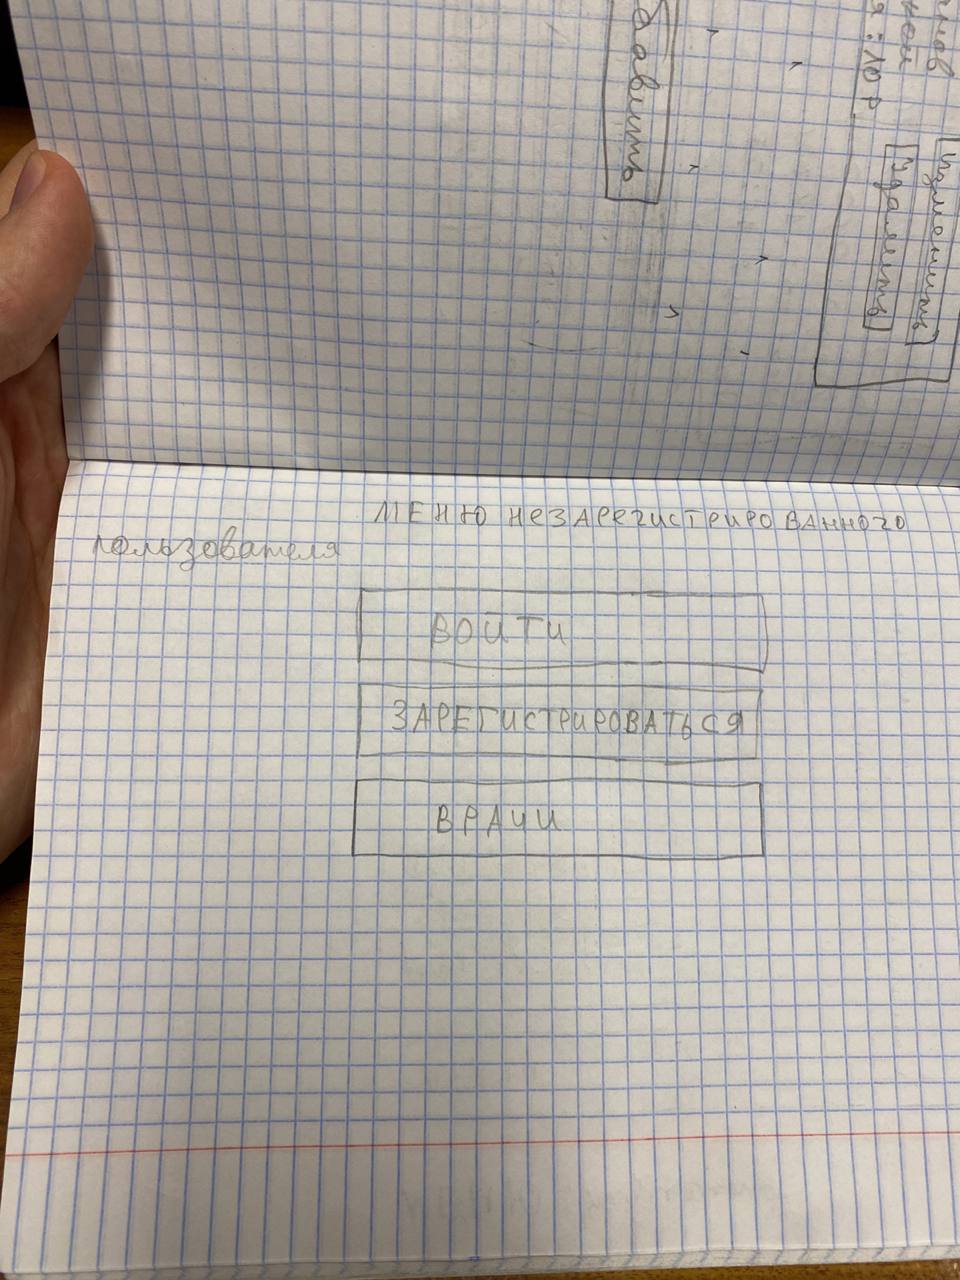 нов
ной
я: ЛОР
Изменить
Удалить
бавить
МЕНЮ НЕЗАРЕГИСТРИРОВАННОГО
пользователя
ВОЙТИ
ЗАРЕГИСТРИРОВАТЬСЯ
ВРАЧИ